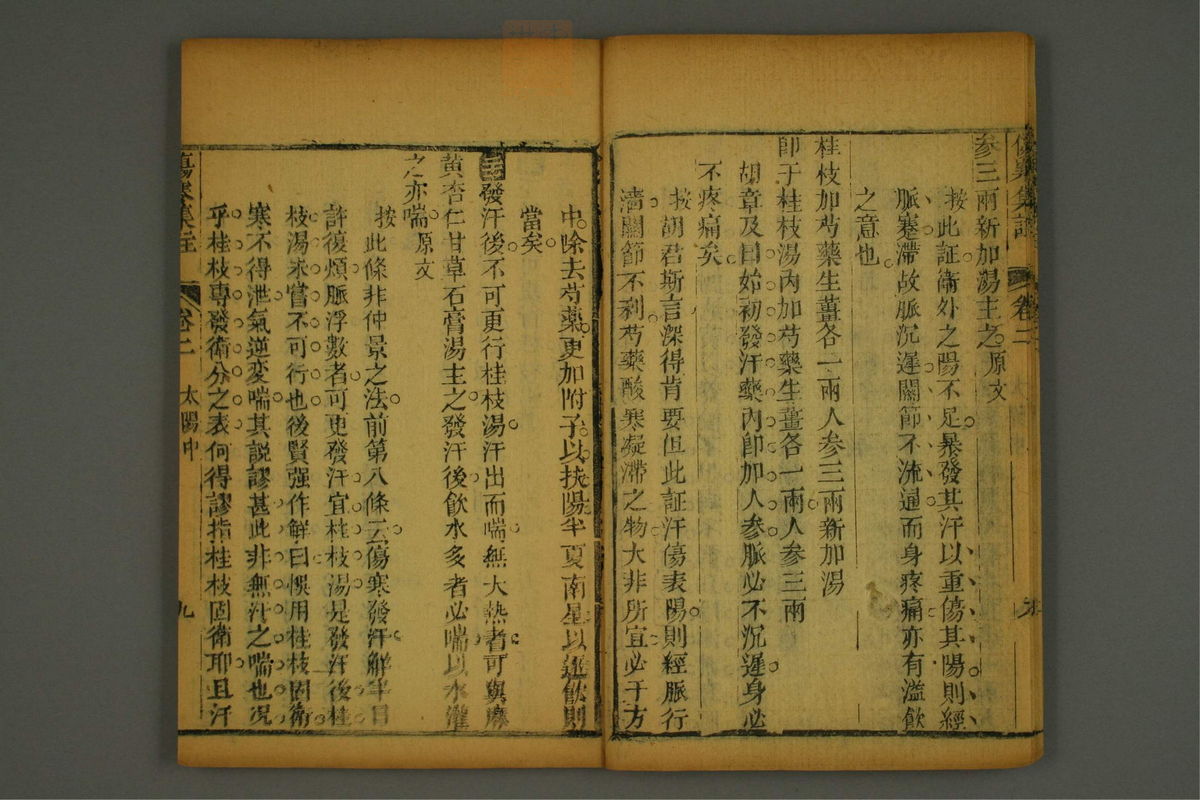 傷寒集註 卷二
參三兩新加湯主之原文
按此証衛外之陽不足暴發其汗以重傷其陽則經
脈塞滯故脈沉遲關節不流通而身疼痛亦有溢飲
之意也
桂枝加芍藥生薑各一兩人參三兩新加湯
即于桂枝湯內加芍藥生薑各一兩人參三兩
胡章及曰如初發汗藥內即加人參脈必不沉遲身必
不疼痛矣
按胡君斯言深得肯要但此証汗傷表陽則經脈行
濇關節不利芍藥酸寒凝滯之物大非所宜必于方
中除去芍藥更加附子以扶陽半夏南星以逐飲則
當矣
發汗後不可更行桂枝湯汗出而喘無大熱者可與麻
黃杏仁甘草石膏湯主之發汗後飲水多者必喘以水灌
之亦喘原文
按此條非仲景之法前第八條云傷寒發汗解半日
許復煩脈浮數者可更發汗宜桂枝湯是發汗後桂
枝湯未嘗不可行也後賢强作解曰悞用桂枝固衛
寒不得泄氣逆変喘其説謬甚此非無汗之喘也况
乎桂枝專發衛分之表何得謬指桂枝固衛耶且汗
傷寒集註 卷二 太陽中 九